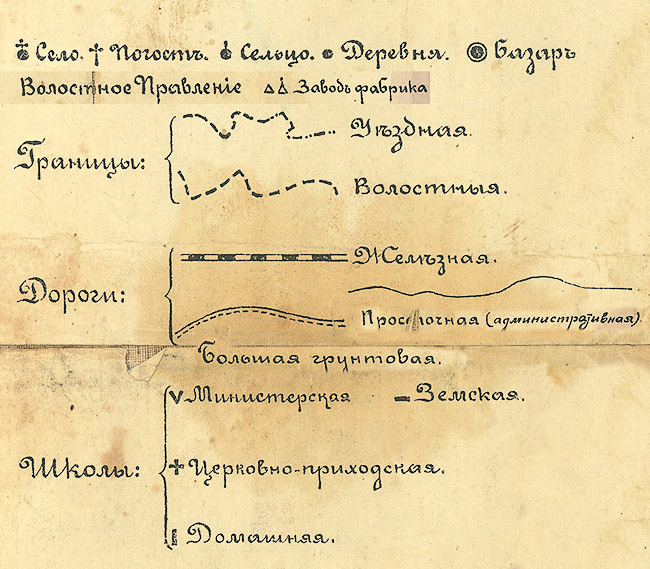 Село. Погостъ. Сельцо. Деревня. Базаръ
Волостное Правленіе Заводъ фабрика
Границы:
Уѣздная.
Волостныя.
Дороги:
Желѣзная.
Проселочная (административная).
Большая грунтовая.
Школы:
Министерская Земская.
Церковно-приходская.
Домашняя.